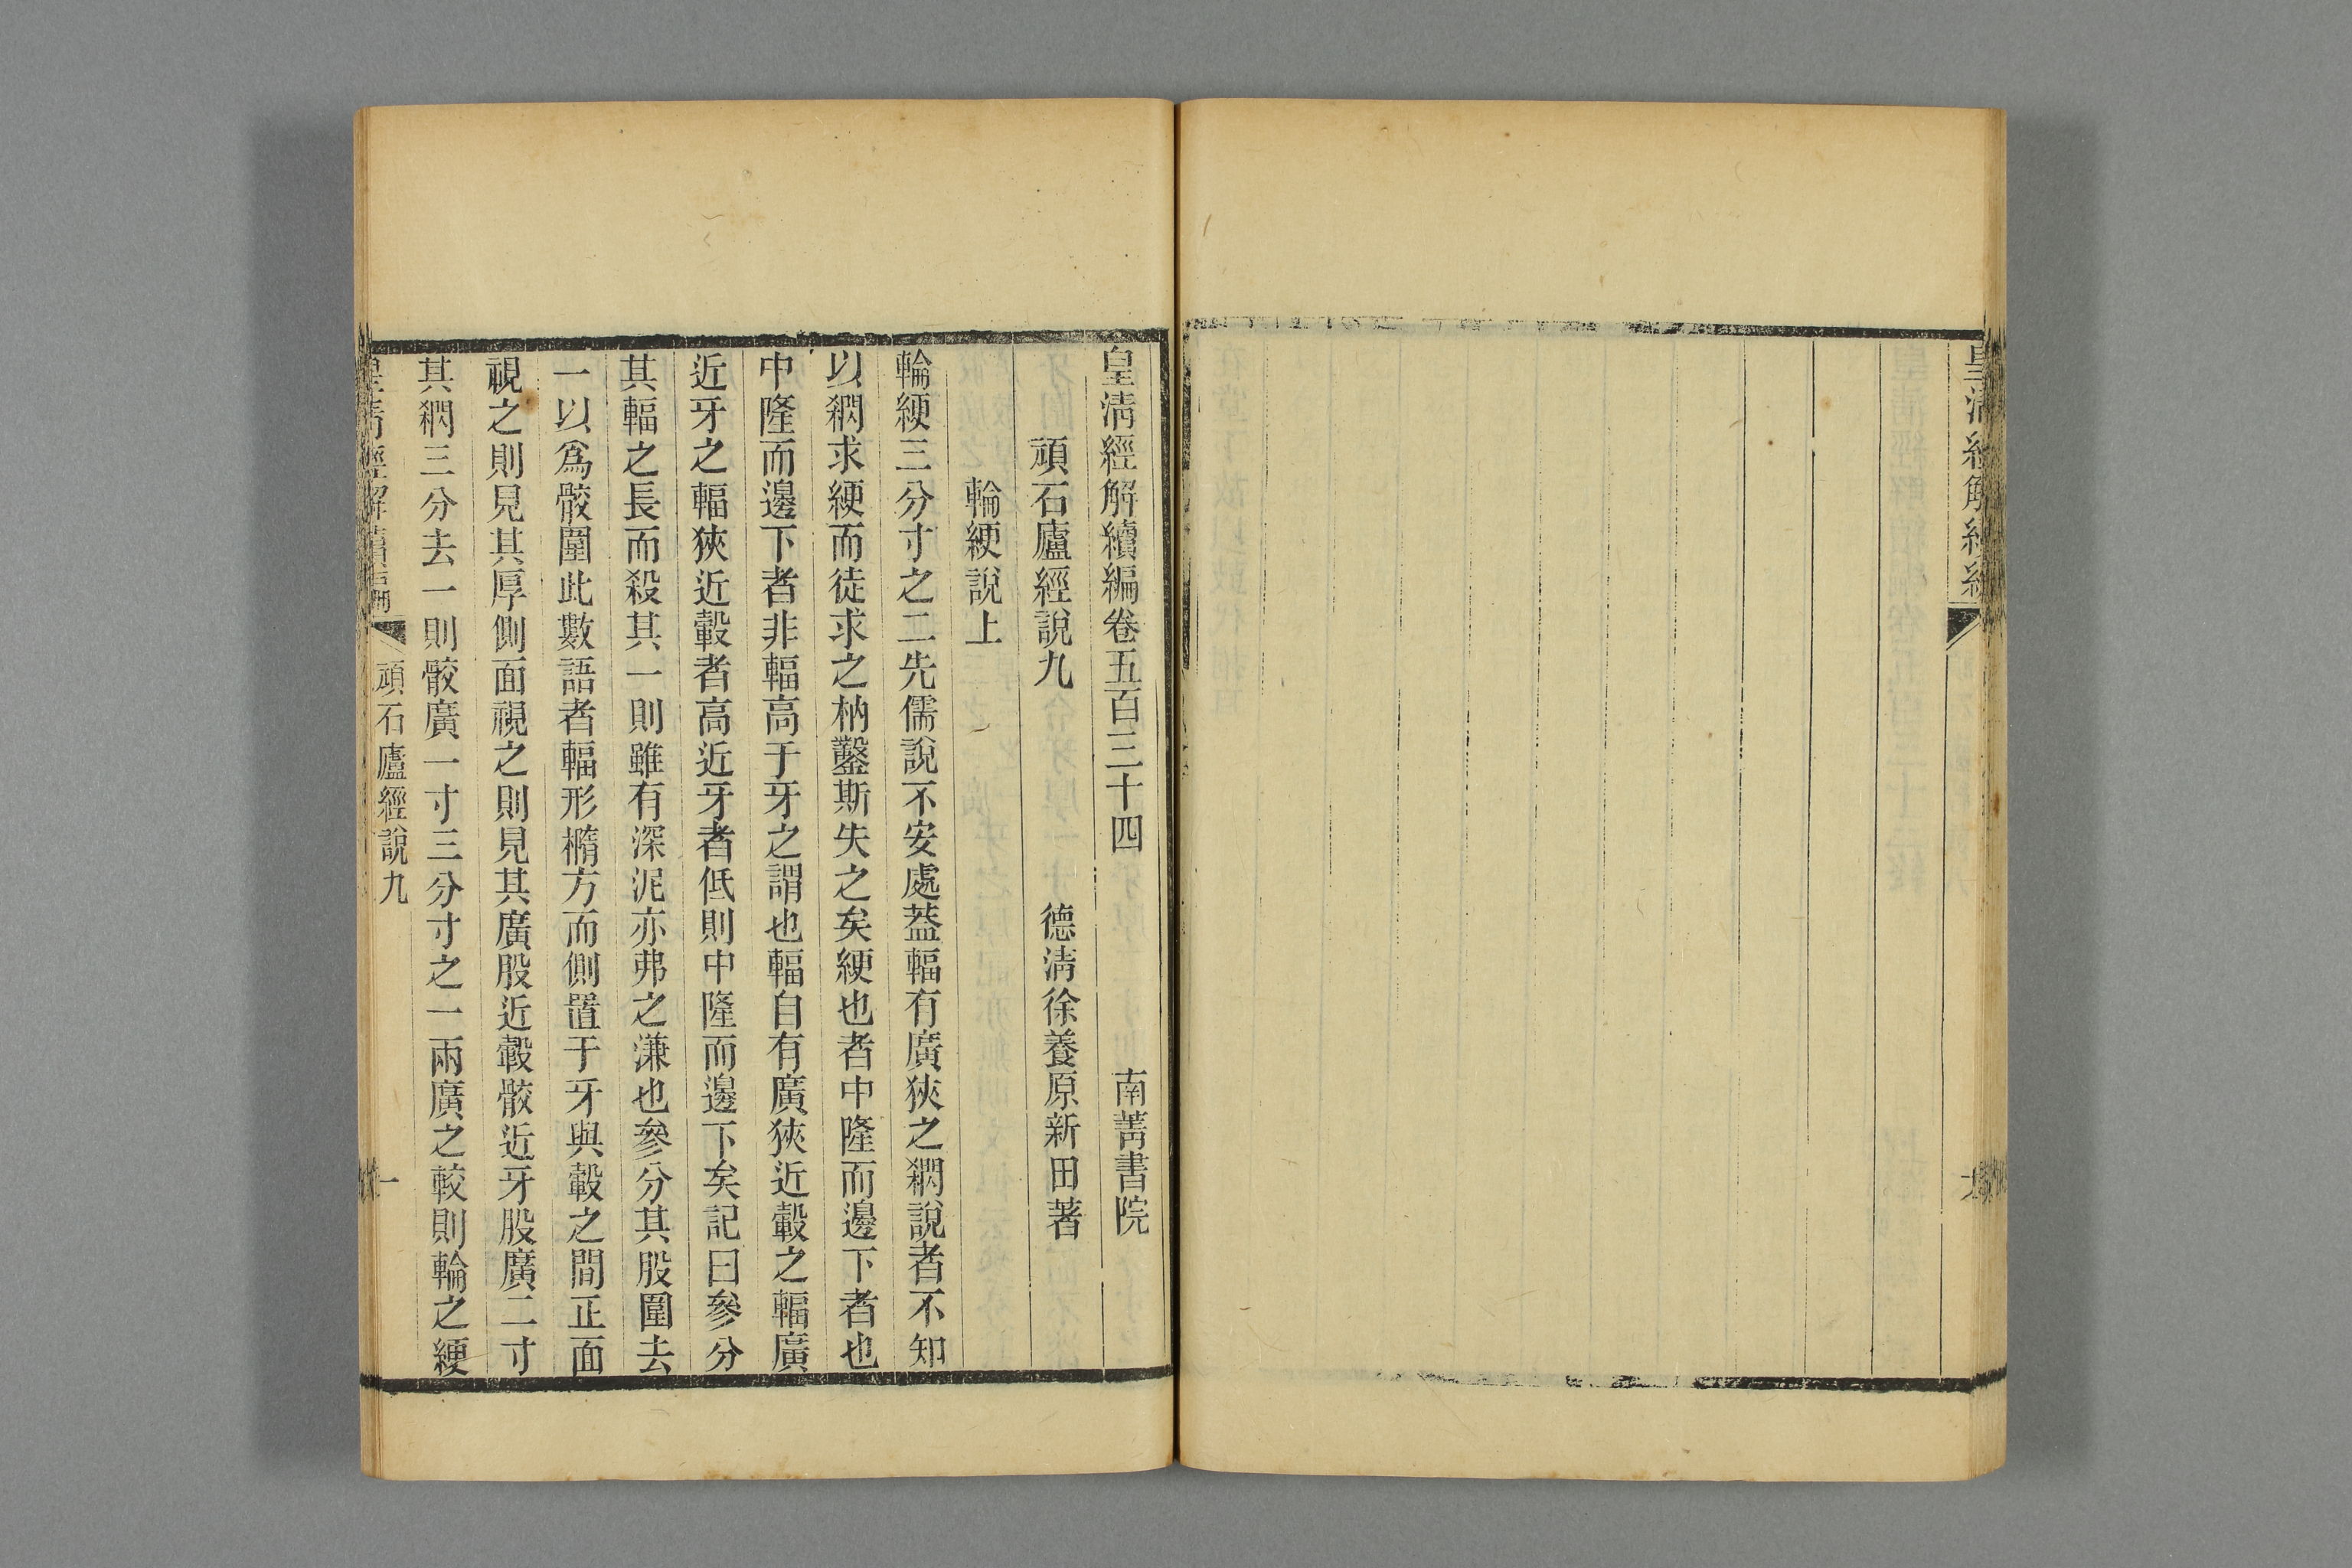 皇清經解續編
皇清經解續編卷五百三十四　南菁書院
頑石廬經說九　德清徐養原新田著
輪綆說上
輪綆三分寸之二先儒說不安處蓋輻有廣狹之𥀻說者不知
以𥀻求綆而徒求之枘鑿斯失之矣綆也者中隆而邊下者也
中隆而邊下者非輻高于牙之謂也輻自有廣狹近轂之輻廣
近牙之輻狹近轂者高近牙者低則中隆而邊下矣記曰參分
其輻之長而殺其一則雖有深泥亦弗之溓也參分其股圍去
一以爲骹圍此數語者輻形橢方而側置于牙與轂之間正面
視之則見其厚側面視之則見其廣股近轂骹近牙股廣二寸
其𥀻三分去一則骹廣一寸三分寸之一兩廣之較則輪之綆
皇清經解續編　頑石廬經說九　一